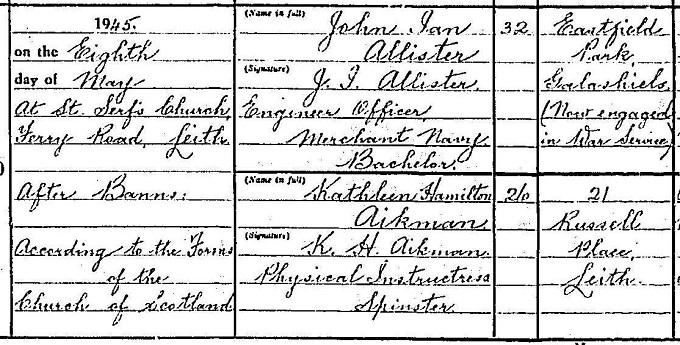 1945.
on the Eighth
day of May
At St. Serf's Church,
Ferry Road, Leith.
After Banns:
According to the Forms
of the
Church of Scotland
(Name in full)
John Ian
Allister
(Signature)
J. I. Allister.
Engineer Officer,
Merchant Navy.
Bachelor.
(Name in full)
Kathleen Hamilton
Aikman.
(Signature)
K. H. Aikman.
Physical Instructress
Spinster.
32
26
Eastfield
Park,
Galashiels.
(Now engaged
in War Service)
21
Russell
Place,
Leith.